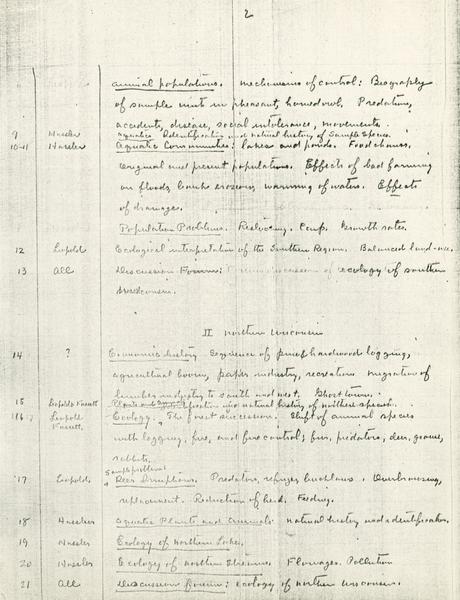 2
animal populations. mechanisms of control: Biography
of sample units in pheasant, horned owl. Predation,
accidents, disease, social intolerance, movements.
9 Hasler Aquatics Identification and natural history of Sample Species.
10-11 Hasler Aquatic Communities: lakes and ponds. Food chains.
Original and present populations. Effects of bad farming
on floods, bank erosion, warming of waters. Effects
of drainage.
Population Problems. Carp. Growth rates.
12 Leopold Ecological interpretation of the Southern Region. Balanced land-use.
13 All Discussion Forum: ecology of southern
Wisconsin.
II Northern Wisconsin
14 ? Economic history Sequence of pine, hardwood logging,
agricultural boom, paper industry, recreation migration of
lumber industry to south and west. Ghost towns.
15 Leopold & Fassett Plants and identification and natural history of northern species.
16 Leopold Fassett Ecology. The forest succession. Shift of animal species
with logging, fire, and fire control; fur, predators, deer, grouse,
rabbits.
Sample problems
17 Leopold Deer Irruptions. Predators, refuges, bucklaws. Overbrowsing,
replacement. Reduction of herd. Feeding.
18 Hasler Aquatic Plants and Animals natural history and identification.
19 Hasler Ecology of northern Lakes.
20 Hasler Ecology of northern Streams Flowages. Pollution
21 All Discussion Forum: ecology of northern Wisconsin.